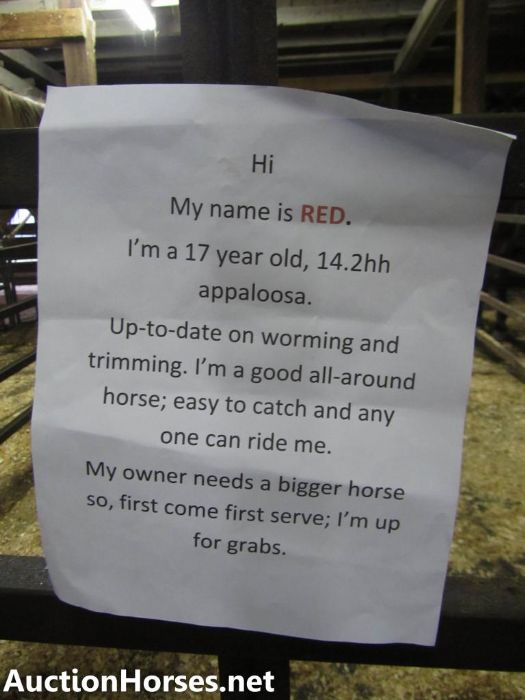 Hi
My name is RED.
I'm a 17 year old, 14.2hh
appaloosa.
Up-to-date on worming and
trimming. I'm a good all-around
horse; easy to catch and any
one can ride me.
My owner needs a bigger horse
so, first come first serve; I'm up
for grabs.
AuctionHorses.net